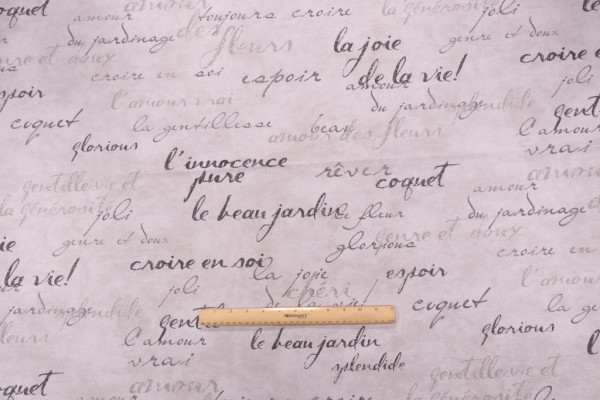 coquet amour amour toujours croire la joli le
du jardinage des fleurs la joie genre et doux
genre et doux croire en soi espoir de la vie! croire e
espoir l'amour vrai amour du jardinage splendide joli gent
coquet la gentillesse beau amour des fleurs l'amour
glorious vrai
l'innocence pure rêver coquet amour amour
gentille vie et
la générosité joli le beau jardin la fleur du jardinage
genre et doux glorious genre et doux
la vie! croire en soi la joie espoir croire en
joli chéri l'amour
jardinage splendide de la vie! coquet joli
fleurs gent
l'amour le beau jardin glorious
vrai splendide gentille vie et
coquet amour la générosité
amour joli